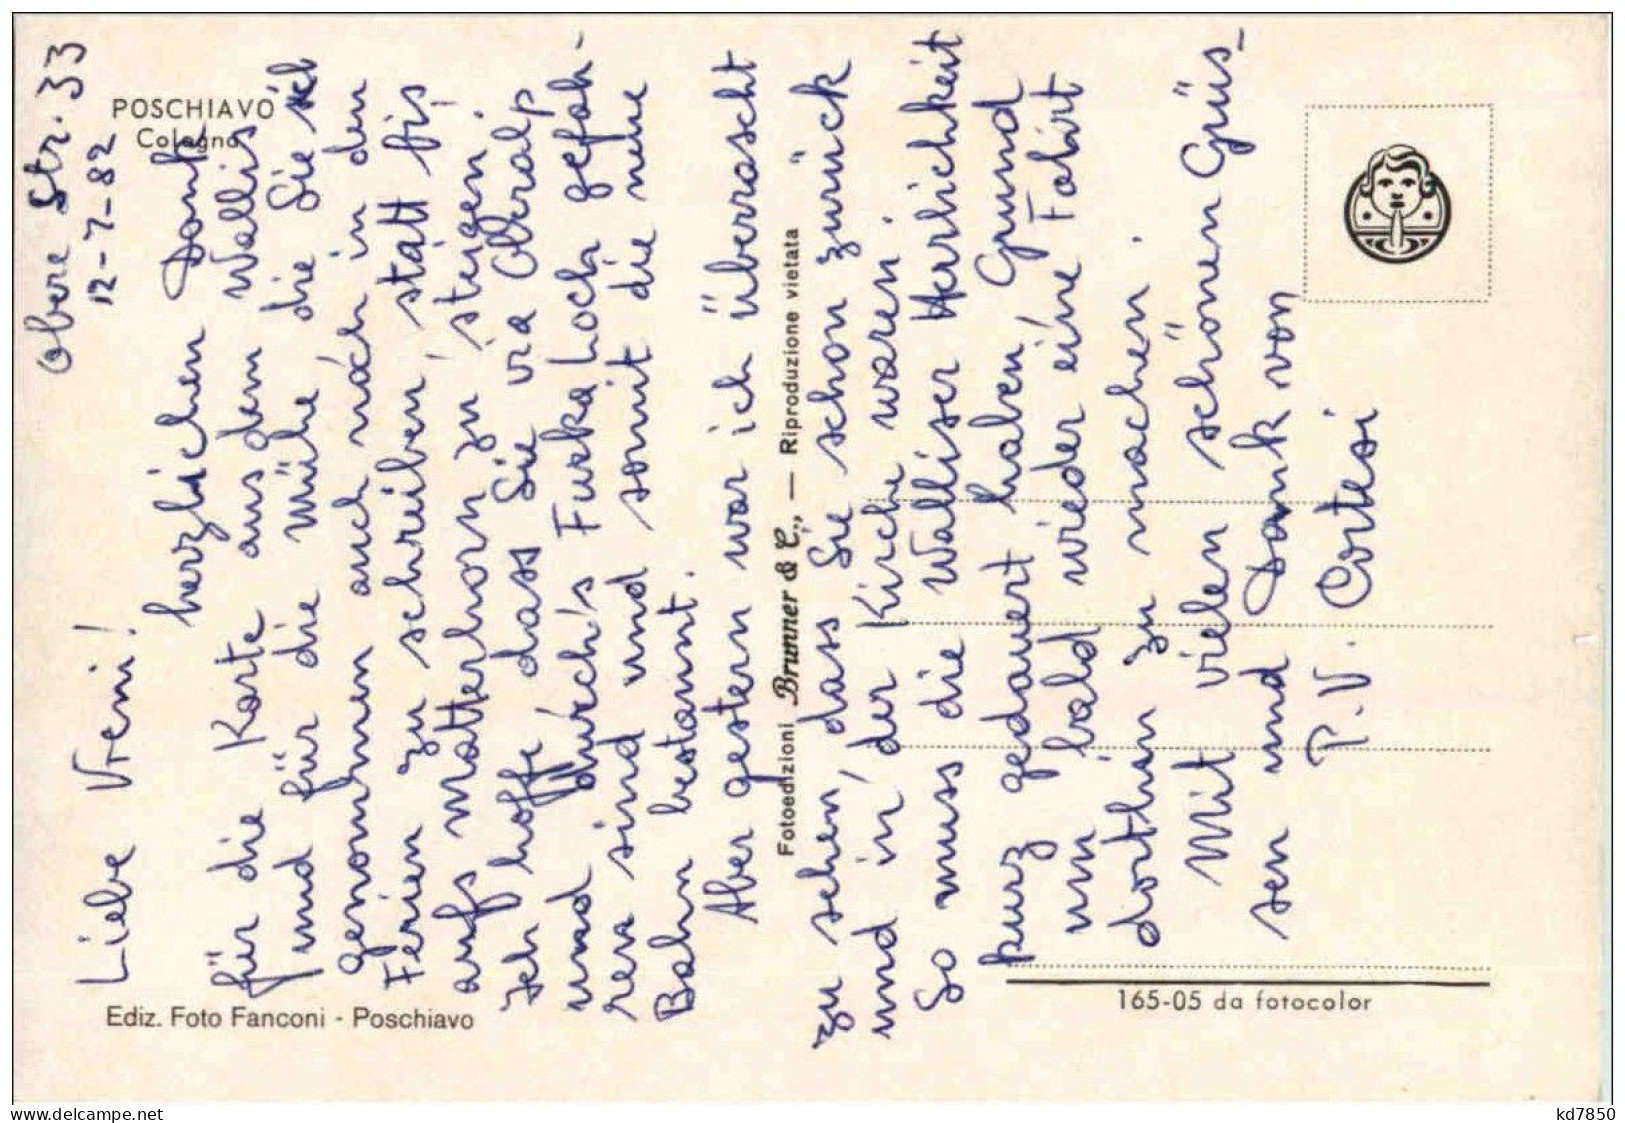 Obere Str. 33
12-7-82
Liebe Vreni!
herzlichen Dank
für die Karte aus dem Wallis
und für die Mühe die Sie sich
genommen auch nach in den
Ferien zu schreiben, statt bis
aufs Matterhorn zu steigen.
Ich hoffe, dass Sie via Oberalp
und durch's Furka Loch gefah-
ren sind und somit die neue
Bahn bestannt.
Aber gestern war ich überrascht
zu sehen, dass Sie schon zurück
und in der Kirche waren.
So muss die Walliser Herrlichkeit
kurz gedauert haben, Grund
um bald wieder eine Fahrt
dorthin zu machen.
Mit vielen schönen Grüs-
sen und Dank von
P. V. Cortesi
POSCHIAVO
Cologna
Ediz. Foto Fanconi - Poschiavo
Fotoedizioni Brunner & C., — Riproduzione vietata
165-05 da fotocolor
www.delcampe.net
kd7850